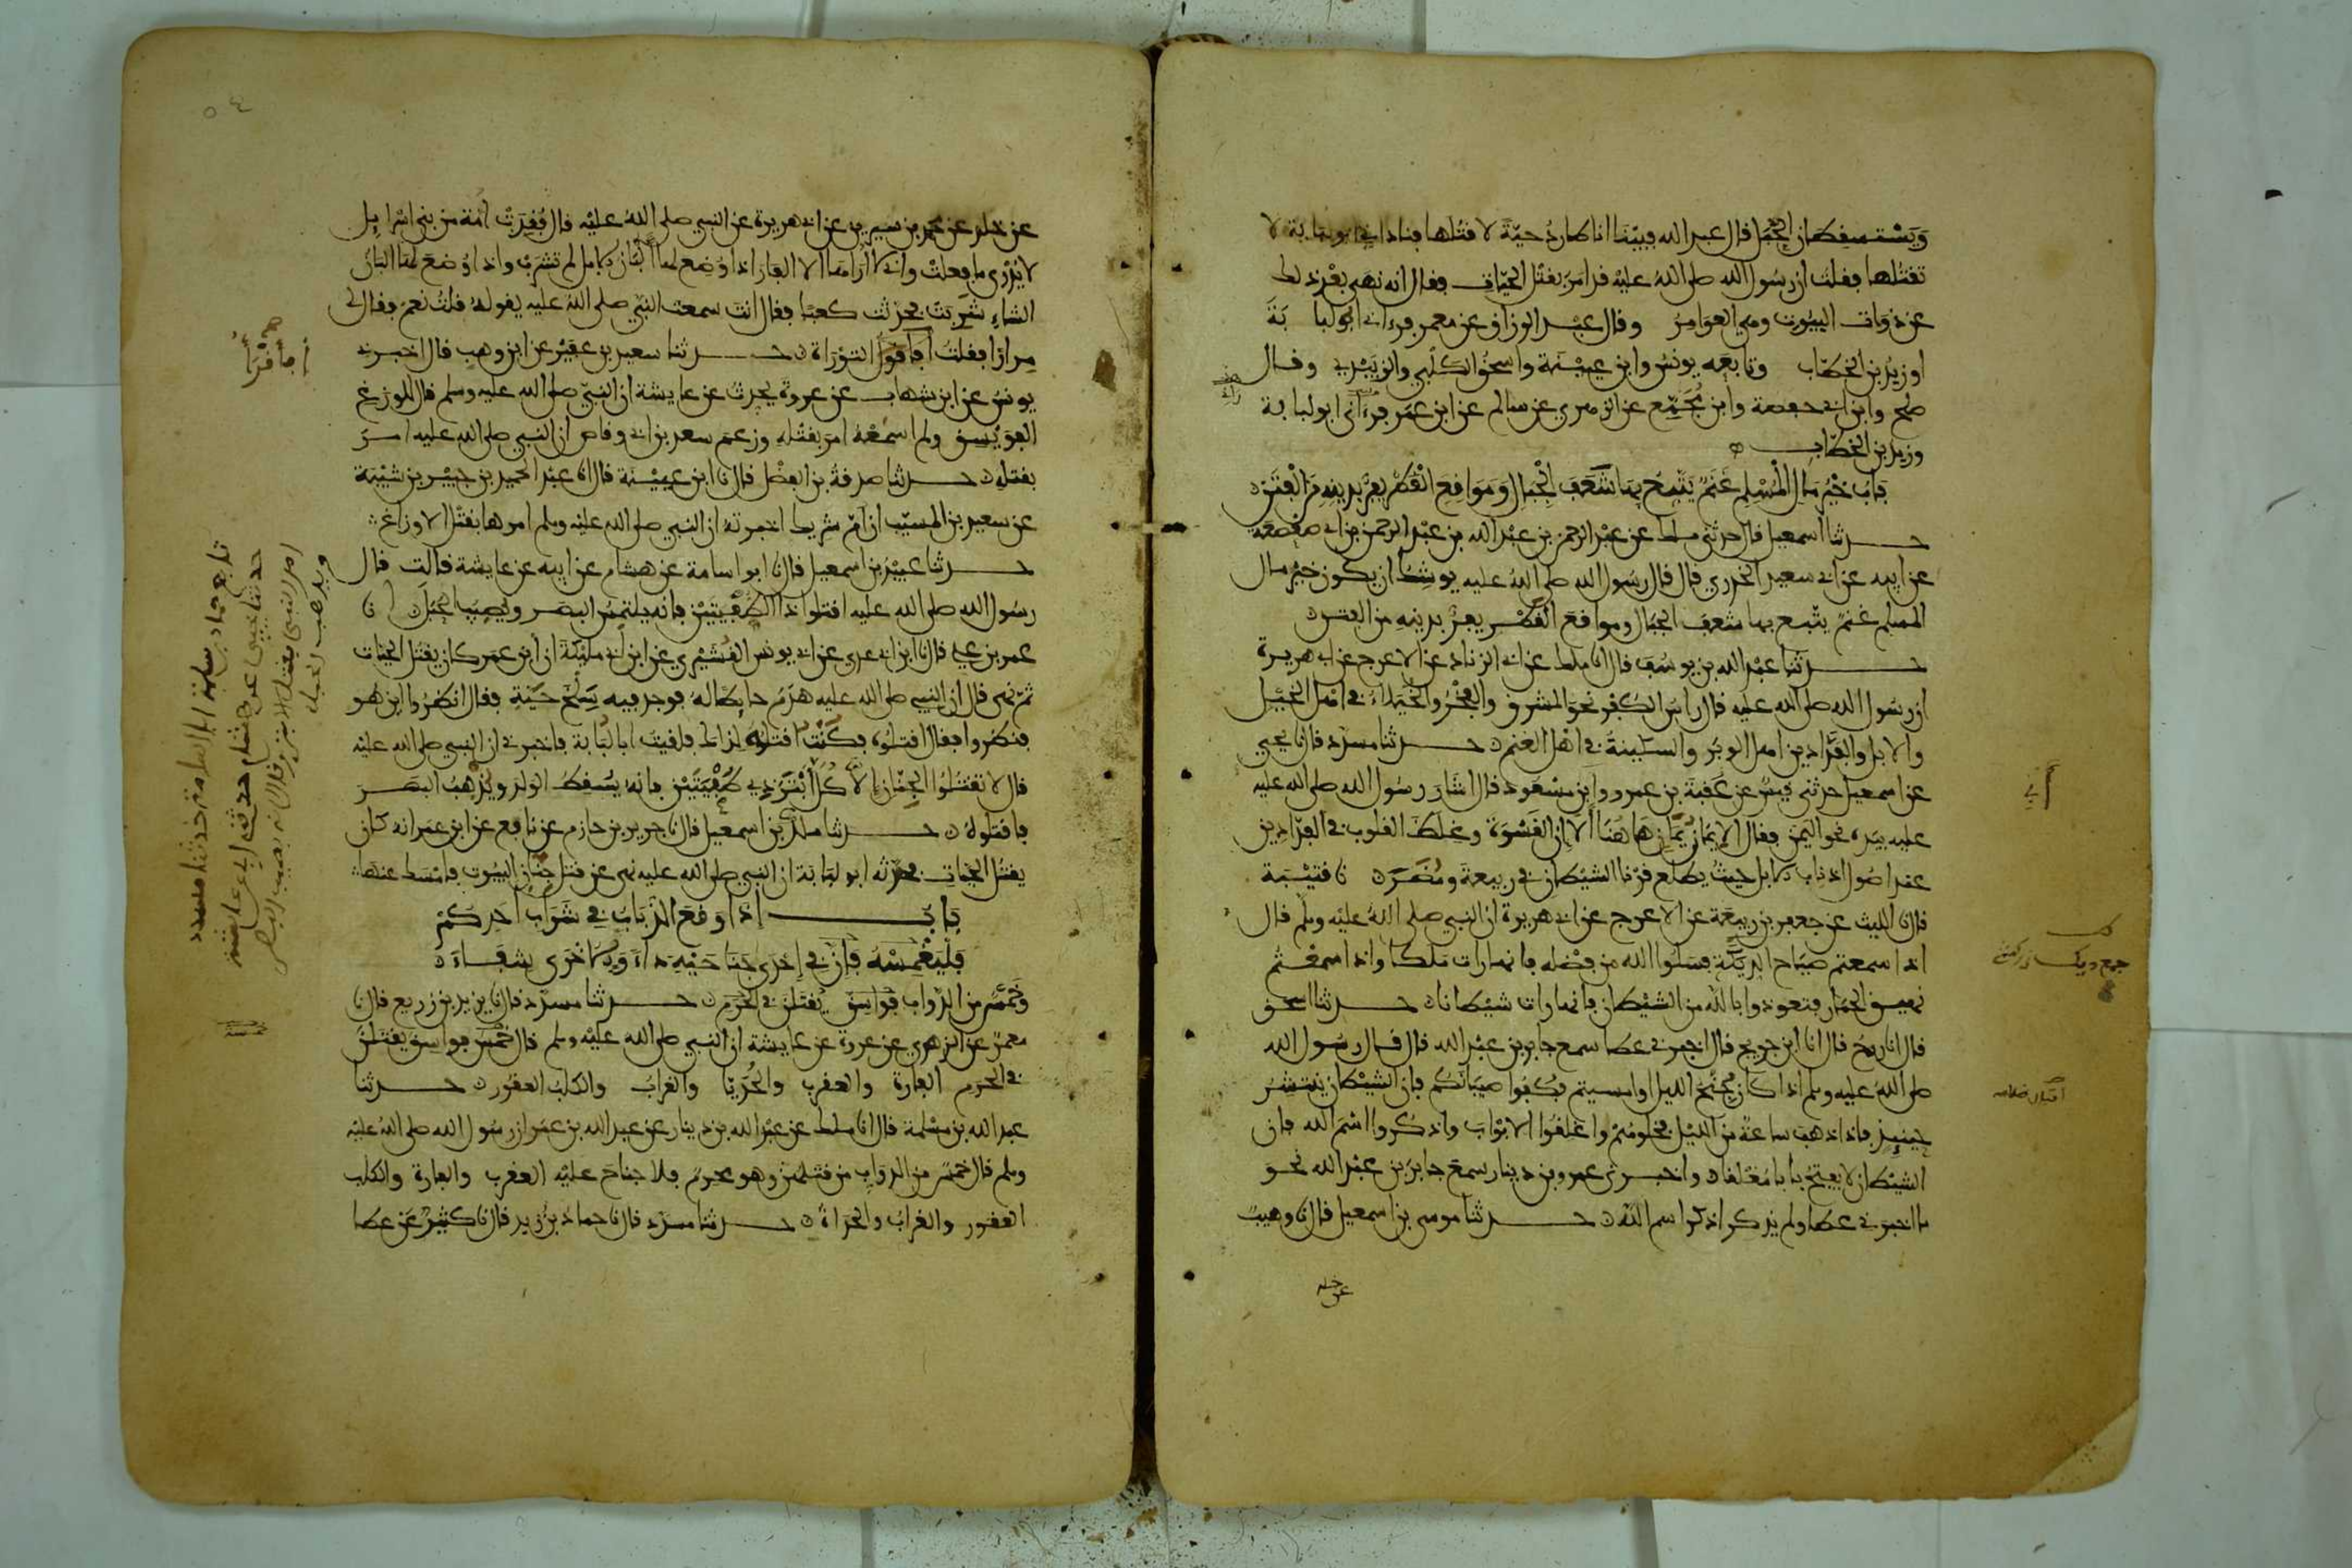 وَيَسْتسقِطان الحَبَل قال عبد الله فبَيْنا انا اطاردُ حيّةً لاقتُلها فناداني ابو لبابة لا
تقتُلها فقلت ان رسُول الله صلى اللهُ عليْه قد امَرَ بقتْل الحيّات فقال انه نهى بعْد ذلك
عن ذوات البيُوت وهي العوَامِرُ وقال عبْد الرزاق عن معمر فرءاني ابو لبابَةَ
او زيْدُ بن الخطّاب وتابعَه يونسُ وابن عيَيْنَة واسحٰقُ الكلْبي والزبَيْدي وقال
صٰلح وابن ابي حفصة وابن مُجَمِّع عن الزهري عن سالم عن ابن عمَر فرءاني ابو لبابة
وزيد بن الخطّاب
بَابُ خيْرُ مَالِ الْمُسْلِمِ غَنَمٌ يَتْبَعُ بِهَا شَعَفَ الْجِبَالِ وَمَوَاقِعَ الْقَطْرِ يَفِرُّ بِدِينِهِ مِنَ الْفِتَنِ
حدثنا اسمعيل قال حدثني ملك عن عبْد الرحمن بن عبْد الله بن عبْد الرحمن بن ابي صعْصعَة
عن ابيه عن ابي سعيد الخدري قال قال رسُول الله صلى اللهُ عليه يوشِكُ ان يكون خيْرُ مال
المسلم غنمٌ يتْبع بها شعَف الجبال ومواقعَ القطْر يفِرُّ بدينِهِ من الفتن
حدثنا عبْد الله بن يوسُف قال انا ملك عن ابي الزناد عن الاعرج عن ابي هريرة
ان رسُول الله صلى الله عليه قال راسُ الكُفْر نحوَ المشرق والفخْرُ والخُيَلاءُ في اهْل الخيْل
والابل والفَدّادين اهل الوبَر والسكينةُ في اهْل الغنم حدثنا مسدّد قال نا يحيي
عن اسمعيل حدثني قيسٌ عن عقبَة بن عمرو ابن مسْعود قال اشارَ رسُول الله صلى الله عليه
عليه بيَده نحو اليمن فقال الإيمَانُ يَمَانٍ هَا هُنَا ألَا إن القَسْوَة وغِلَظَ القلوب في الفدّادين
عند اصُول اذناب الابل حيثُ يطلع قرْنا الشيْطان في ربيعة ومُضَرَ نا قتيْبَة
قال نا الليث عن جعفر بن ربيعَة عن الاعرج عن ابي هريرة ان النبي صلى اللهُ عليْه وسلم قال
اذا سمعتم صيَاح الدِيَكَة فسَلُوا الله من فضْله فانها رات ملكا واذا سمعْتُم
نهيق الحمَار فتعوذوا بالله من الشيْطان فانها رات شيْطانا حدثنا اسحٰق
قال انا روحٌ قال انا ابن جريج قال اخبرني عطا سمع جابر بن عبْد الله قال قال رسُول الله
صلى اللهُ عليه وسلم اذا كان جُنْح الليل او امسيتم فكُفوا صبيَانكم فان الشيْطان ينتشرُ
حينئِذ فاذا ذهبَ ساعةٌ من الليْل فخلوهُمْ واغلقُوا الابْوَاب واذكروا اسْم الله فان
الشيْطان لا يفتحُ بابا مُغلقا واخبرني عمرو بن دينار سمعَ جابرَ بن عبْد الله نحو
ما اخبرني عطا ولم يذكر اذكرا اسم اللهِ حدثنا موسى بن اسمعيل قال نا وهيبٌ
عن خلد
عن خلد عن محمد بن سيرين عن ابي هريرة عن النبي صلى اللهُ عليْه قال فُقِدَتْ امّة من بني اسْرائِل
لا يُدْرى ما فعلتْ واني لا اراها الا الفارَ اذا وُضِع لها ألبانُ الابل لم تشرَبْ واذا وُضعَ لها البَانُ
الشاءِ شَرِبَتْ فحدّثتُ كعبًا فقال انتَ سمعتَ النبّي صلى اللهُ عليه يقوله قلتُ نعَمْ فقال لي
مِرارًا فقلتُ أفأقرَأُ التوْرَاة حدثنا سعيد بن عفَيْر عن ابن وهبٍ قال اخبرني
يونس عن ابن شهاب عن عروة يحدث عن عايشة ان النبّيَ صلى الله عليه وسلم قال للوزغ
الفوَيْسق ولم اسمَعْهُ امَر بقتْله وزعمَ سعد بن ابي وقاص ان النبي صلى الله عليه امرَ
بقتله حدثنا صدقةُ بن الفضْل قال نا ابن عييْنة قال نا عبْد الحميد بن جبيْر بن شيْبَة
عن سعيد بن المسيّب ان أمّ شريك اخبرته ان النبي صلى الله عليه وسلم امرها بقتْل الاوزاغ
حدثنا عبيْد بن اسمعيل قال نا ابو اسامة عن هشام عن ابيه عن عايشة قالت قال
رسُول الله صلى الله عليه اقتلوا ذا الطُّفْيتيْن فانه يلتمِسُ البصَر ويُصِيبُ الحَبَلَ نا
عمرو بن علي قال نا ابن ابي عدي عن ابي يونس القُشيْري عن ابن ابي مليْكة ان ابن عمر كان يقتُل الحيّات
ثمّ نهى قال ان النبي صلى الله عليه هَدَمَ حايِطًا لهُ فوجد فيه سِلْخَ حَيّةٍ فقال انظرُوا اين هو
فنظرُوا فقال اقتلُوه فكُنْتُ اقتلُها لذلك فلقيتُ ابا لُبَابة فاخبرني ان النبي صلى الله عليْه
قال لا تقتُلُوا الجِنّان إلا كُلَّ أبْتَرَ ذِي طُفْيَتَيْن فانه يُسْقِطُ الولَد ويُذْهِبُ البصَر
فاقتلوهُ حدثنا ملكُ بن اسمعيل قال نا جرير بن حازم عن نافع عن ابن عمَر انه كان
يقتُل الحيّات فحدّثه ابو لبَابَة ان النبي صلى الله عليه نهى عن قتل جِنّان البيُوت فامْسَك عنها
بَابٌ إذَا وَقعَ الذُّبَابُ فِي شَرَابِ أحَدِكُمْ
فَلْيَغْمِسْهُ فَإِنَّ في إحْدَى جَنَاحَيْهِ دَاءً وَفِي الاخْرَى شِفَاءً
وخَمْسٌ من الدَّوَاب فوَاسِقُ يُقتَلنَ في الحَرَم حدثنا مسدّد قال نا يزيد بن زريع قال نا
معمرٌ عن الزهري عن عروة عن عايشة ان النبي صلى الله عليْه وسلم قال خمْسٌ فواسِقُ يقتَلنَ
في الحرَم الفارَة والعقرب والحُدَيّا والغرابُ والكلبُ العقور حدثنا
عبد الله بن مسْلمة قال انا ملك عن عبْد الله بن دينار عن عبد الله بن عمَر ان رسُول الله صلى اللهُ عليْه
وسلم قال خمسٌ من الدوَابِ من قتلهُنّ وهو محرمٌ فلا جناحَ عليْه العقرب والفارة والكلب
العقور والغرابُ والحِدَاةُ حدثنا مسدّد قال نا حماد بن زيد قال نا كثيْرٌ عن عطا
أفأقْرَأُ
تابع حماد بن سلمة ابا اسامة حدثنا مسدد
حدثنا يحيى عن هشام حدثني ابي عن عايشة
امر النبي بقتل الابتر وقال انه يصيب البصر
ويذهب الحبل
جمع ديك